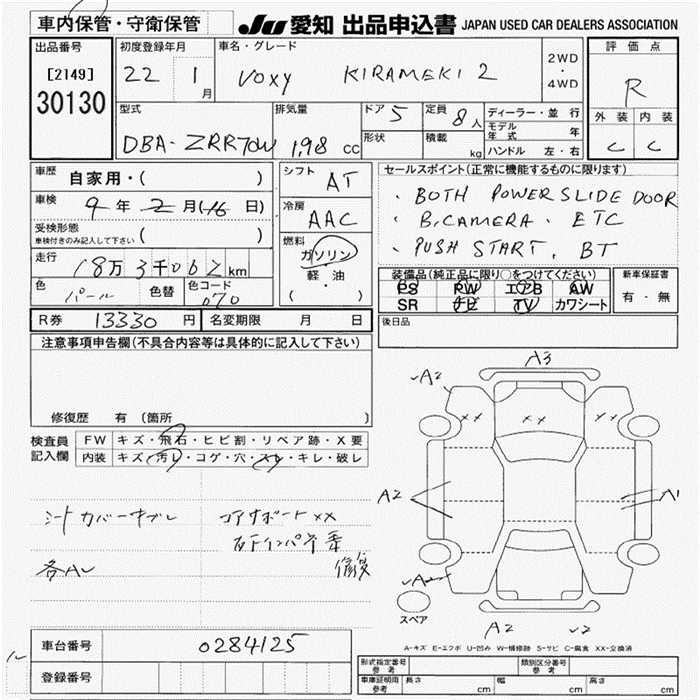 車内保管・守衛保管
JU 愛知 出品申込書 JAPAN USED CAR DEALERS ASSOCIATION
出品番号
[2149]
30130
初度登録年月
22 1月
車名・グレード
VOXY KIRAMEKI 2
2WD
・
4WD
評価点
R
外装 内装
C C
型式
DBA-ZRR70W
排気量
1,98 cc
ドア 5
定員 8人
形状
積載 kg
ディーラー・並行
モデル年式 年
ハンドル 左・右
車歴 自家用・( )
車検 9年2月(16日)
受検形態
車検付きのみ記入して下さい ( )
走行 18万3千062km
色 パール
色替
色コード 070
シフト AT
冷房 AAC
燃料
ガソリン
軽・油
( ・ )
セールスポイント(正常に機能するものに限ります)
・BOTH POWER SLIDE DOOR
・B,CAMERA・ETC
・PUSH START, BT
装備品(純正品に限り○をつけてください)
PS PW エアB AW
SR ナビ TV カワシート
新車保証書
有・無
R券 13330円
名変期限 月 日
後日品
注意事項申告欄(不具合内容等は具体的に記入して下さい)
修復歴 有(箇所 )
検査員記入欄
FW キズ・飛石・ヒビ割・リペア跡・X要
内装 キズ・汚レ・コゲ・穴・スレ・キレ・破レ
シートカバーヤブレ
コアサポートXX
右F インパネ
修復
各AL
A3
A2
XX XX XX
A2
A1
A2
スペア
A2
A-キズ E-エクボ U-凹み W-補修跡 S-サビ C-腐食 XX-交換済
車台番号 0284125
登録番号
型式指定番号
参考
類別区分番号
参考
車庫証明用
参考
長さ cm
幅 cm
高さ cm